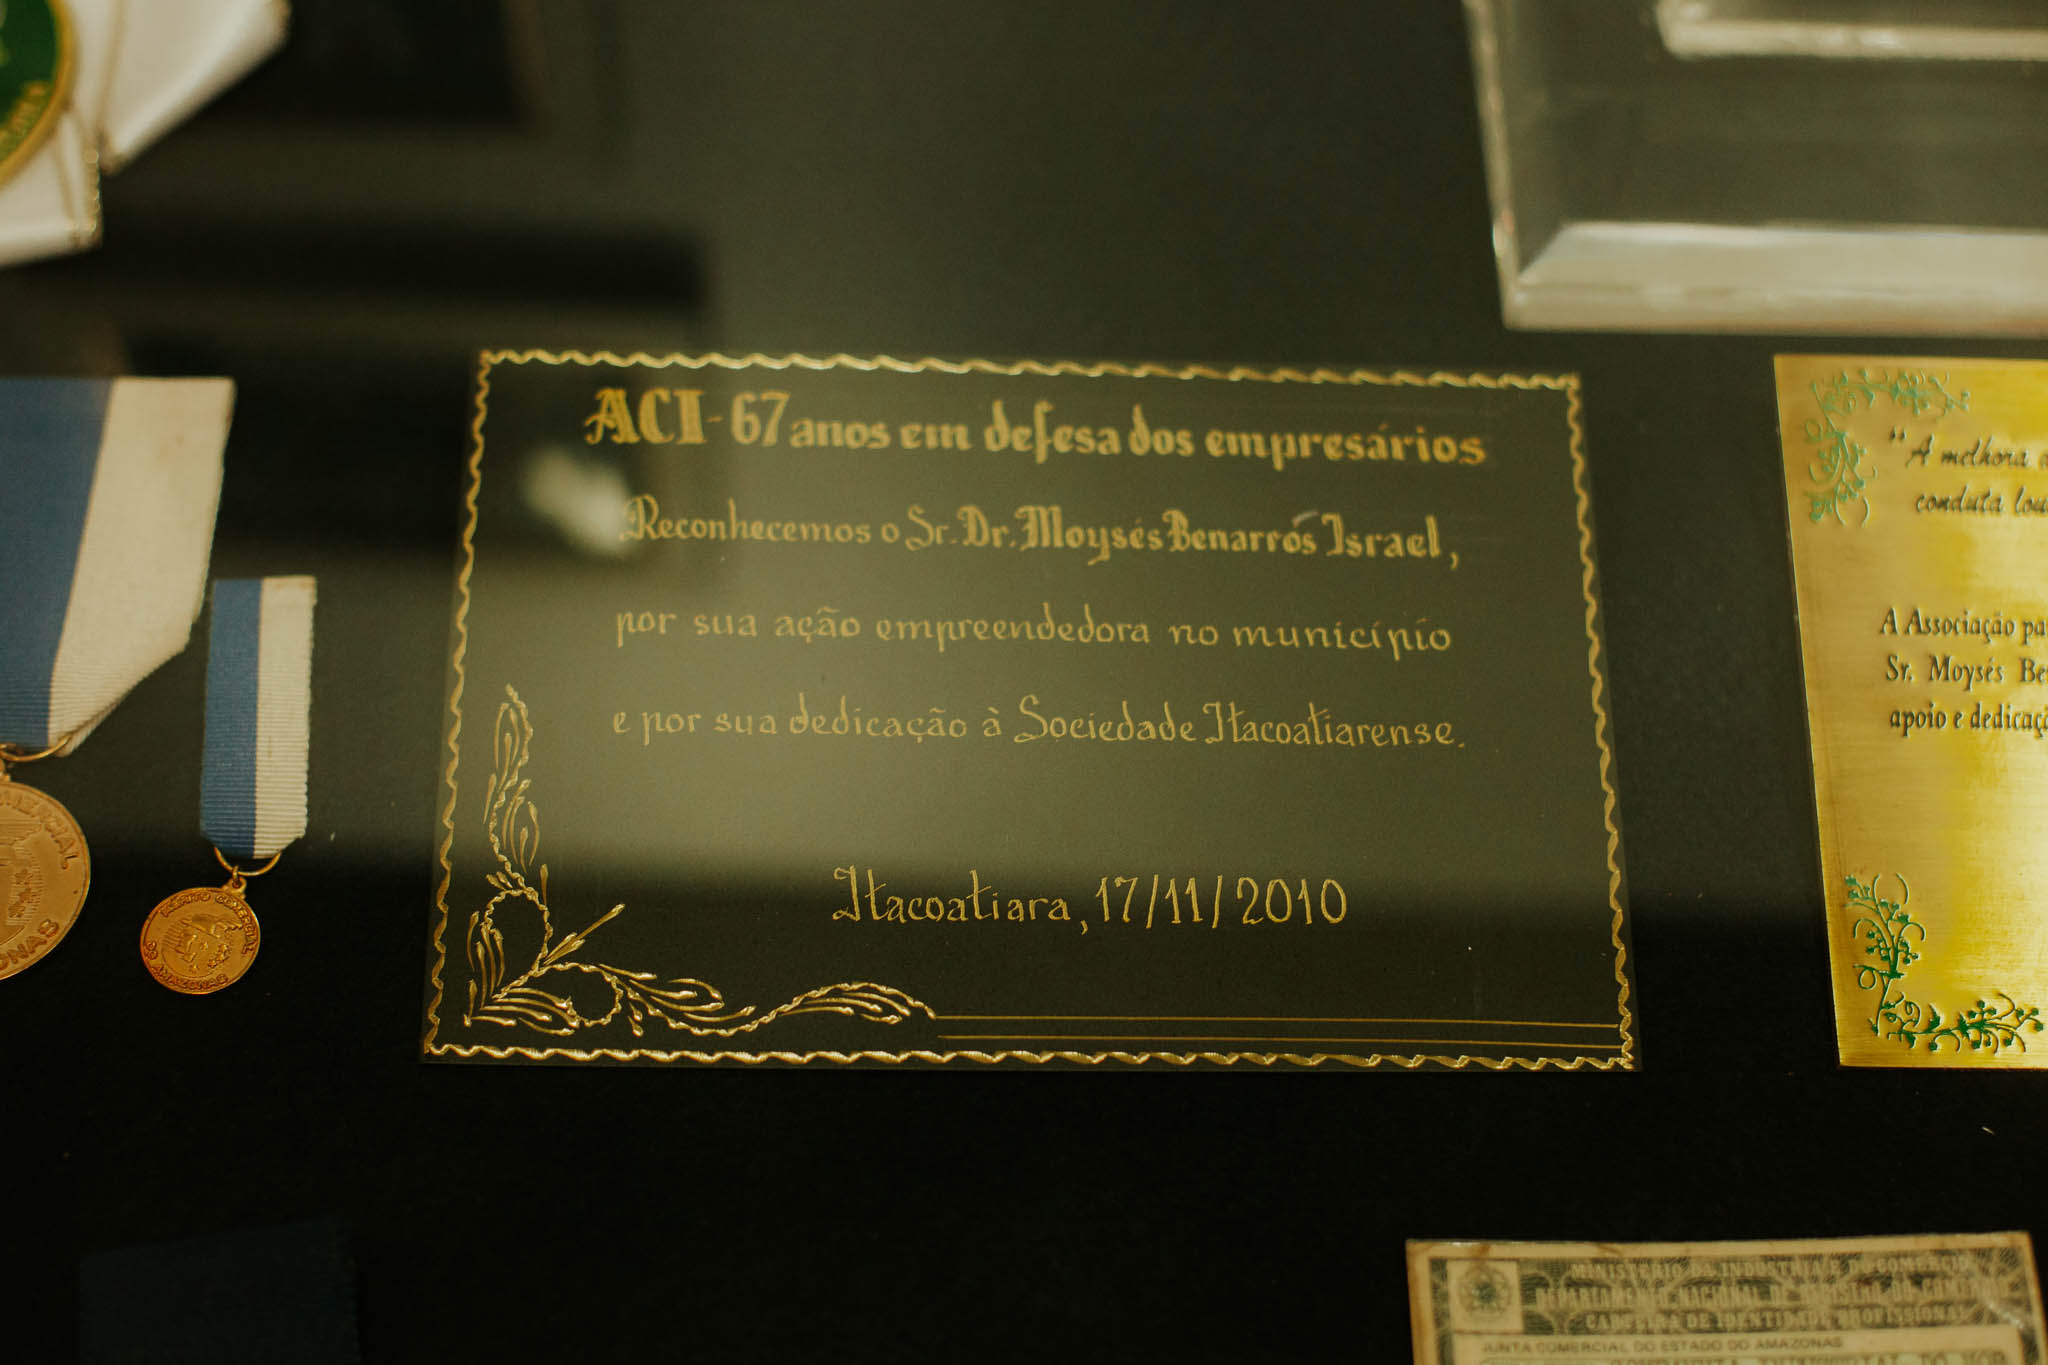 ACI - 67 anos em defesa dos empresários
Reconhecemos o Sr. Dr. Moysés Benarrós Israel,
por sua ação empreendedora no município
e por sua dedicação à Sociedade Itacoatiarense.
Itacoatiara, 17/11/2010
"A melhora
conduta
A Associação
Sr. Moysés
apoio e
MÉRITO COMERCIAL
DO AMAZONAS
MINISTÉRIO DA INDÚSTRIA E DO COMÉRCIO
DEPARTAMENTO NACIONAL DE REGISTRO DO COMÉRCIO
CARTEIRA DE IDENTIDADE PROFISSIONAL
JUNTA COMERCIAL DO ESTADO DO AMAZONAS